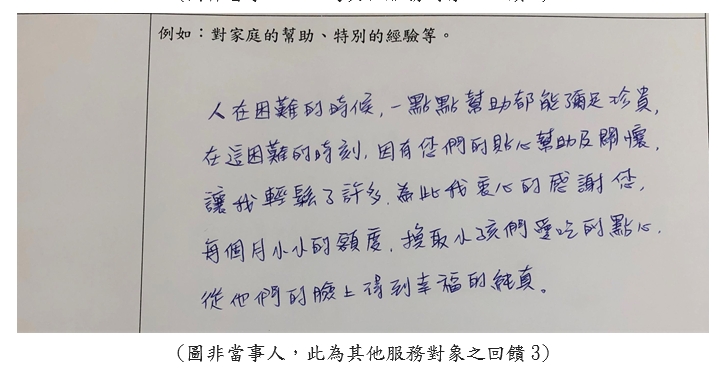 例如：對家庭的幫助、特別的經驗等。
人在困難的時候，一點點幫助都能彌足珍貴，
在這困難的時刻，因有您們的貼心幫助及關懷，
讓我輕鬆了許多，為此我衷心的感謝您，
每個月小小的額度，換取小孩們愛吃的點心，
從他們的臉上得到幸福的純真。
(圖非當事人，此為其他服務對象之回饋 3)